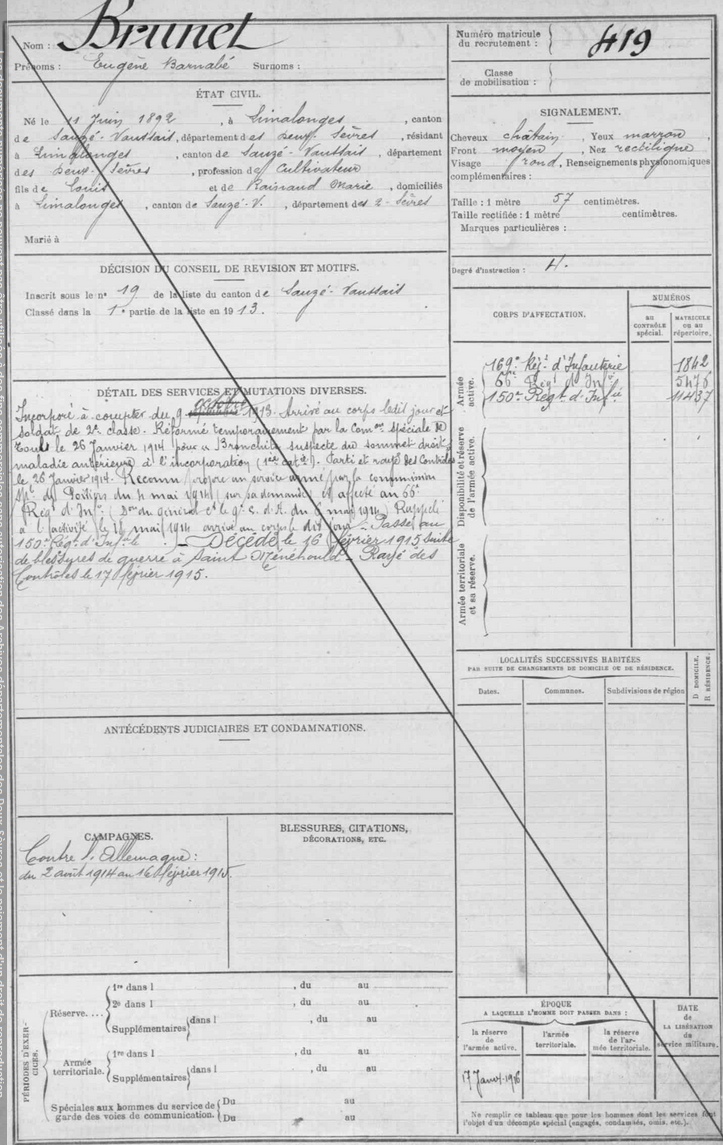 Nom : Brunet
Prénoms : Eugène Barnabé Surnoms :
Numéro matricule
du recrutement : 419
Classe
de mobilisation :
ÉTAT CIVIL.
Né le 11 Juin 1892, à Limalonges, canton
de Sauzé-Vaussais, département des Deux Sèvres, résidant
à Limalonges, canton de Sauzé-Vaussais, département
des Deux-Sèvres, profession de Cultivateur
fils de Louis et de Rainaud Marie, domiciliés
à Limalonges, canton de Sauzé-V., département des 2-Sèvres
Marié à
SIGNALEMENT.
Cheveux châtain, Yeux marron
Front moyen, Nez rectiligne
Visage rond, Renseignements physionomiques
complémentaires :
Taille : 1 mètre 57 centimètres.
Taille rectifiée : 1 mètre centimètres.
Marques particulières :
DÉCISION DU CONSEIL DE REVISION ET MOTIFS.
Inscrit sous le n° 19 de la liste du canton de Sauzé-Vaussais
Classé dans la 1e partie de la liste en 1913.
Degré d'instruction :
CORPS D'AFFECTATION.
NUMÉROS
au
CONTRÔLE
spécial.
MATRICULE
ou au
répertoire.
Armée
active.
169e Rég.t d'Infanterie 1842
66e Régt d'Inf.ie 5476
150e Régt d'Inf.ie 11437
Disponibilité et réserve
de l'armée active.
Armée territoriale
et sa réserve.
DÉTAIL DES SERVICES ET MUTATIONS DIVERSES.
Incorporé à compter du 9 octobre 1913. Arrivé au corps ledit jour et
soldat de 2e classe. Réformé temporairement par la Comon spéciale de
Toul le 26 Janvier 1914 pour Bronchite suspecte du sommet droit
maladie antérieure à l'incorporation. Parti et rayé des Contrôles
le 26 Janvier 1914. Reconnu propre au service armé par la commission
sple de Poitiers du 4 mai 1914 (sur sa demande) et affecté au 66e
Rég. d'Inf. (Don du général Ct le 9e C. d'A. du mai 1914) Rappelé
à l'activité le mai 1914 arrivé au corps le dit jour. Passé au
150e Régt d'Inf.ie Décédé le 16 février 1915 suite
de blessures de guerre à Saint Ménéhould. Rayé des
Contrôles le 17 février 1915.
LOCALITÉS SUCCESSIVES HABITÉES
PAR SUITE DE CHANGEMENTS DE DOMICILE OU DE RÉSIDENCE.
Dates. Communes. Subdivisions de région
D. DOMICILE.
R. RÉSIDENCE.
ANTÉCÉDENTS JUDICIAIRES ET CONDAMNATIONS.
CAMPAGNES.
Contre l'Allemagne :
du 2 août 1914 au 16 février 1915.
BLESSURES, CITATIONS,
DÉCORATIONS, ETC.
PÉRIODES D'EXERCICES.
Réserve....
1re dans l , du au
2e dans l , du au
Supplémentaires dans l , du au
Armée
territoriale.
1re dans l , du au
Supplémentaires dans l , du au
Spéciales aux hommes du service de
garde des voies de communication.
Du au
Du au
ÉPOQUE
A LAQUELLE L'HOMME DOIT PASSER DANS :
la réserve
de l'armée active.
l'armée
territoriale.
la réserve
de l'armée territoriale.
DATE
de
LA LIBÉRATION
du
service militaire.
17 Janv. 1916
Ne remplir ce tableau que pour les hommes dont les services font
l'objet d'un décompte spécial (engagés, condamnés, omis, etc.).